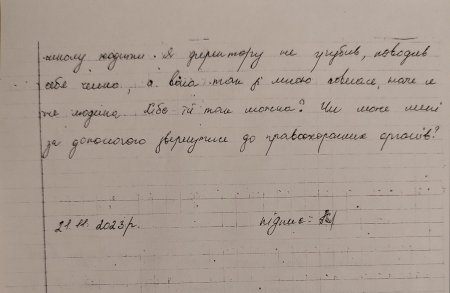 школу ходити. Я директору не грубив, поводив
себе чемно, а вона так зі мною , наче я
не людина. Хіба їй так можна? Чи може мені
за допомогою звернутися до правоохоронних органів?
21.11.2023р. підпис: